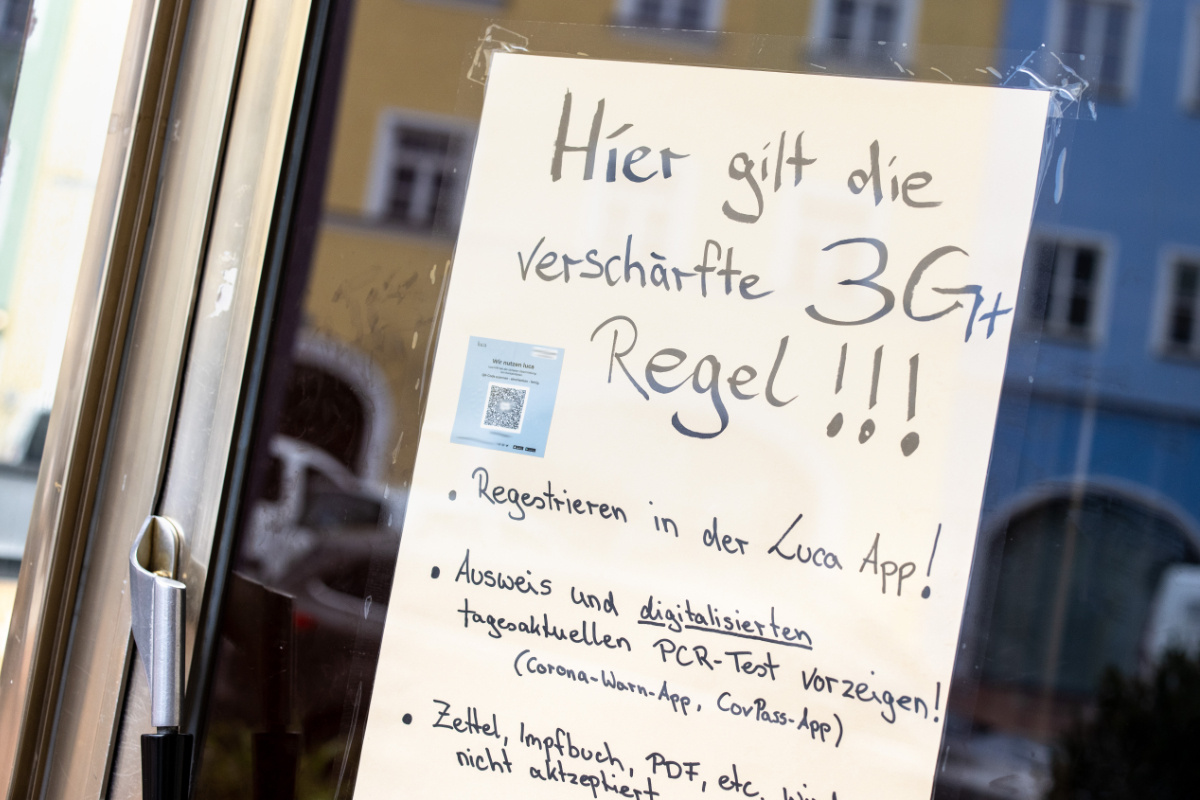 Hier gilt die
verschärfte 3G+
Regel !!!
Wir nutzen luca
• Regestrieren in der Luca App!
• Ausweis und digitalisierten
tagesaktuellen PCR-Test vorzeigen!
(Corona-Warn-App, CovPass-App)
• Zettel, Impfbuch, PDF, etc.
nicht aktzeptiert